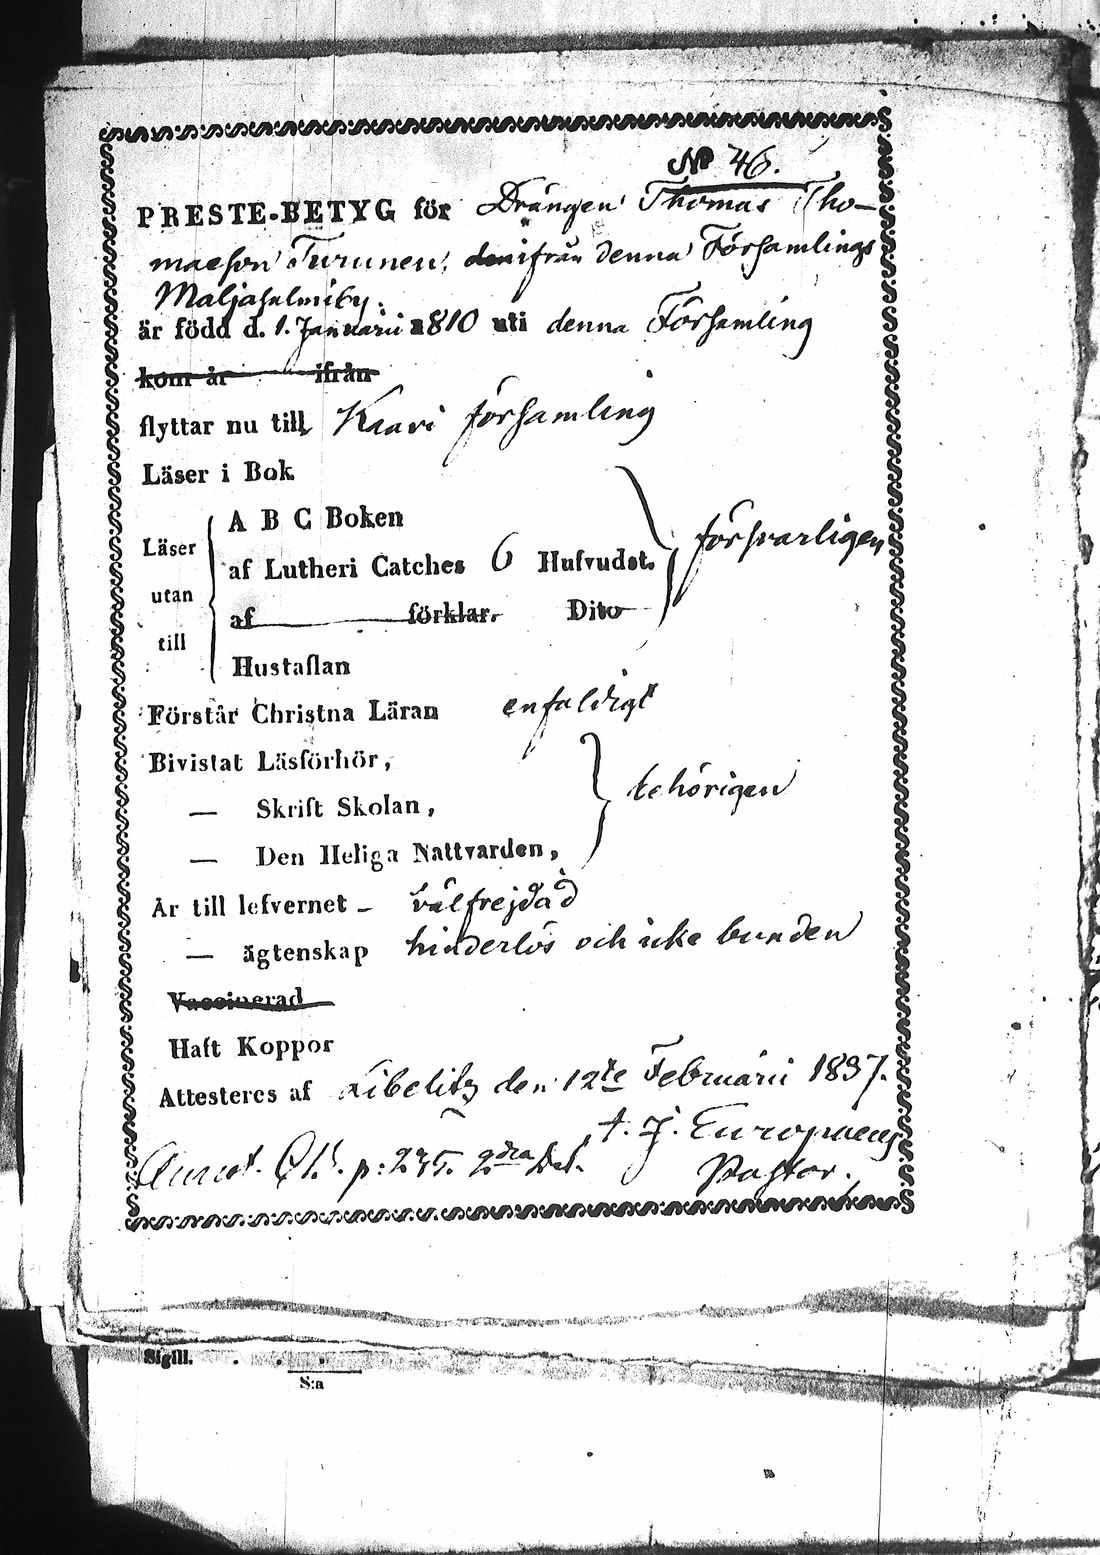 № 46.
PRESTE-BETYG för Drängen Thomas Tho-
masson Turunen, ifrån denna Församlings
Maljasalmiby.
är född d. 1. Januarii 1810 uti denna Församling
kom år ifrån
flyttar nu till Kaavi församling
Läser i Bok
A B C Boken
Läser utan till
af Lutheri Catches 6 Hufvudst. försvarligen
af förklar. Dito
Hustaflan
Förstår Christna Läran enfaldigt
Bivistat Läsförhör,
— Skrift Skolan, behörigen
— Den Heliga Nattvarden,
Är till lefvernet - välfrejdad
— ägtenskap hinderlös och icke bunden
Vaccinerad
Haft Koppor
Attesteres af Libelitz den 12te Februarii 1837.
A. J. Europaeus
Annot. p: 235. 2dra Del. Pastor.
Sigill.
S:a